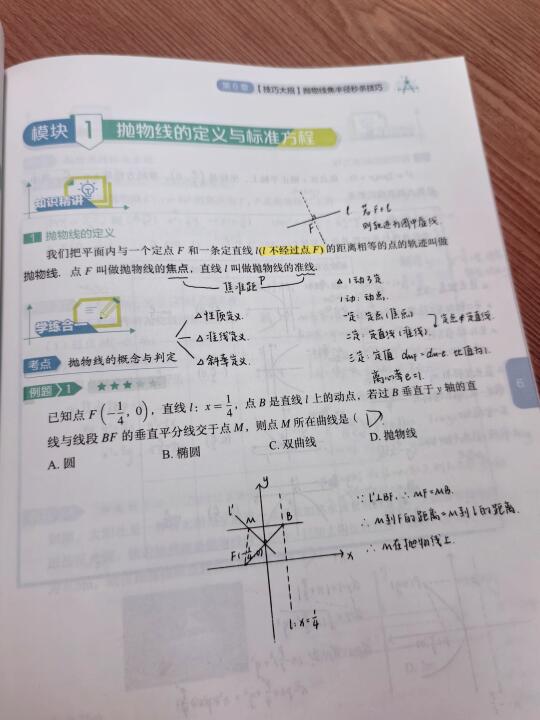 第6章 【技巧大招】抛物线焦半径秒杀技巧
模块 1 抛物线的定义与标准方程
知识精讲
l
F
若F∈l
则轨迹为图中虚线.
1 抛物线的定义
我们把平面内与一个定点 F 和一条定直线 l(l 不经过点 F) 的距离相等的点的轨迹叫做
抛物线. 点 F 叫做抛物线的焦点, 直线 l 叫做抛物线的准线.
焦准距 P
学练合一
△ 性质定义.
△ 准线定义.
△ 1动3定
1动: 动点.
一定: 定点(焦点)
二定: 定直线(准线).
定点∉定直线.
三定: 定值 比值为1.
离心率e=1.
考点 抛物线的概念与判定
例题 1 ★★★
已知点 F(-1/4, 0), 直线 l: x=1/4, 点 B 是直线 l 上的动点, 若过 B 垂直于 y 轴的直
线与线段 BF 的垂直平分线交于点 M, 则点 M 所在曲线是( D )
A. 圆 B. 椭圆 C. 双曲线 D. 抛物线
y
l'
M
B
F(-1/4, 0)
x
l: x=1/4
∵ l'⊥BF, ∴ MF=MB.
∴ M到F的距离=M到l的距离.
∴ M在抛物线上.
6